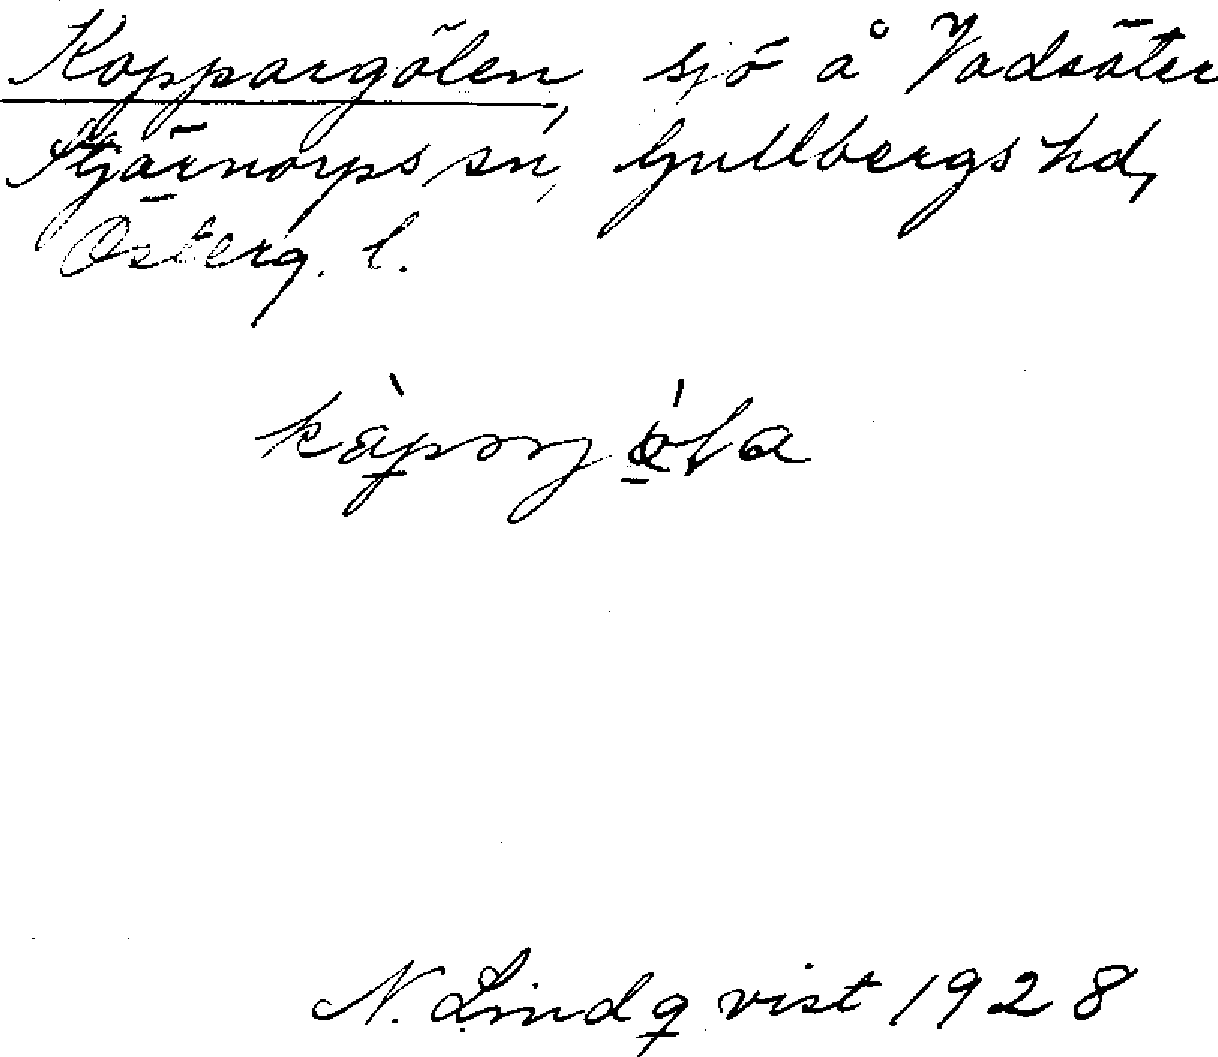 Koppargölen, sjö å Vadsäter
Stjärnorps sn, Gullbergs hd,
Österg. l.
N. Lindqvist 1928